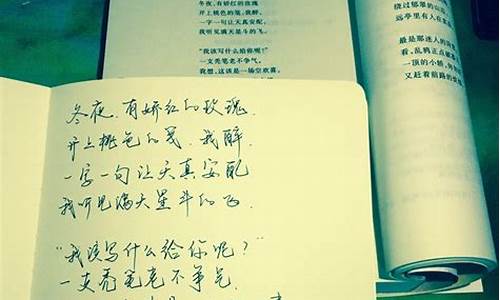 冬夜,有娇红的玫瑰
开上桃色的笺,我醉,
一字一句让天真安配
我听见满天星斗的飞
“我该写什么给你呢?”
一支秃笔老不争气,
冬夜,有娇红的玫瑰
开上桃色的笺,我醉,
一字一句让天真安配,
我听见满天星斗的飞。
“我该写什么给你呢?”
一支秃笔老不争气,
我想,这该是一场空欢喜,
绕过郁翠的山
远亭里有人在
最是那迷人的
看,乱鸦正点破
一顶的小轿,
又赶着前路的